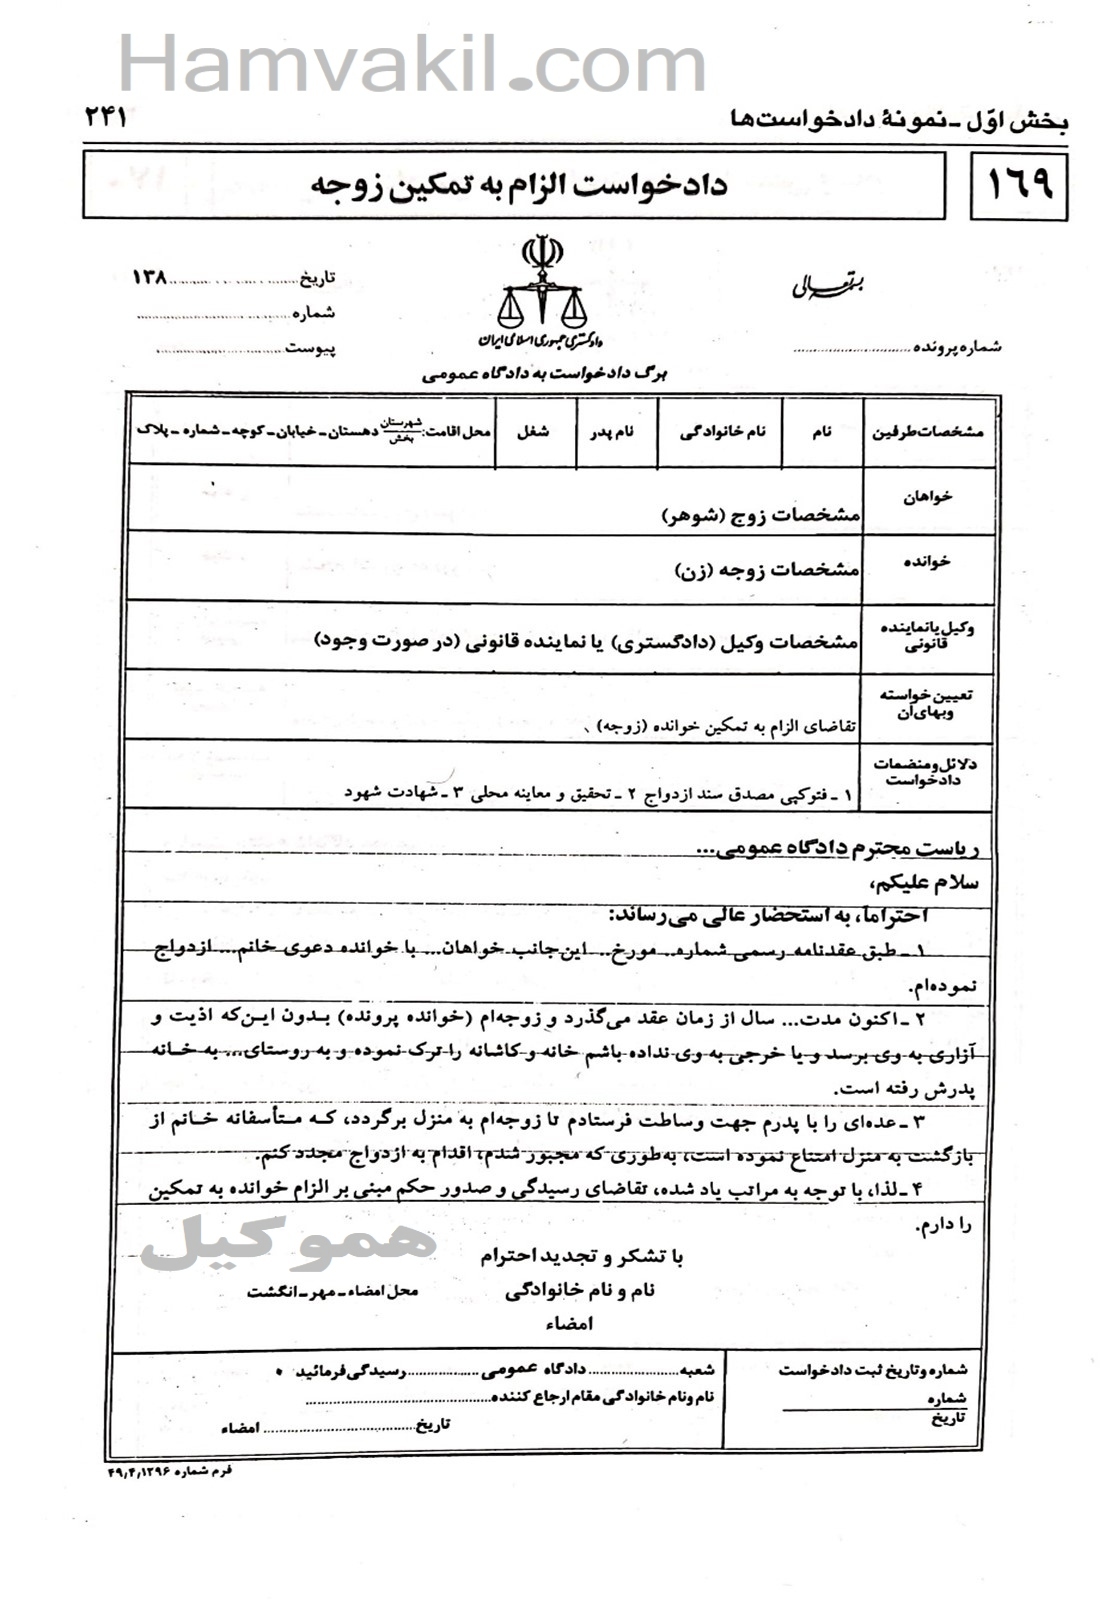 Hamvakil.com
بخش اوّل ـ نمونهٔ دادخواست‌ها
۲۴۱
۱۶۹
دادخواست الزام به تمکین زوجه
بسمه تعالی
دادگستری جمهوری اسلامی ایران
تاریخ..............................۱۳۸
شماره..............................
پیوست..............................
شماره پرونده..............................
برگ دادخواست به دادگاه عمومی
مشخصات طرفین
نام
نام خانوادگی
نام پدر
شغل
محل اقامت: شهرستان بخش دهستان ـ خیابان ـ کوچه ـ شماره ـ پلاک
خواهان
مشخصات زوج (شوهر)
خوانده
مشخصات زوجه (زن)
وکیل یا نماینده
قانونی
مشخصات وکیل (دادگستری) یا نماینده قانونی (در صورت وجود)
تعیین خواسته
وبهای آن
تقاضای الزام به تمکین خوانده (زوجه)
دلائل ومنضمات
دادخواست
۱ ـ فتوکپی مصدق سند ازدواج ۲ ـ تحقیق و معاینه محلی ۳ ـ شهادت شهود
ریاست محترم دادگاه عمومی...
سلام علیکم،
احتراماً، به استحضار عالی می‌رساند:
۱ ـ طبق عقدنامه رسمی شماره.. مورخ.. این‌جانب خواهان... با خوانده دعوی خانم... ازدواج
نموده‌ام.
۲ ـ اکنون مدت... سال از زمان عقد می‌گذرد و زوجه‌ام (خوانده پرونده) بدون این‌که اذیت و
آزاری به وی برسد و یا خرجی به وی نداده باشم خانه و کاشانه را ترک نموده و به روستای... به خانه
پدرش رفته است.
۳ ـ عده‌ای را با پدرم جهت وساطت فرستادم تا زوجه‌ام به منزل برگردد، که متأسفانه خانم از
بازگشت به منزل امتناع نموده است، به‌طوری که مجبور شدم، اقدام به ازدواج مجدد کنم.
۴ ـ لذا، با توجه به مراتب یاد شده، تقاضای رسیدگی و صدور حکم مبنی بر الزام خوانده به تمکین
را دارم.
هموکیل
با تشکر و تجدید احترام
نام و نام خانوادگی
محل امضاء ـ مهر ـ انگشت
امضاء
شماره وتاریخ ثبت دادخواست
شماره
تاریخ
شعبه....................دادگاه عمومی....................رسیدگی فرمائید
نام ونام خانوادگی مقام ارجاع کننده..............................
تاریخ..............................امضاء
فرم شماره ۴۹٫۴٫۱۲۹۶